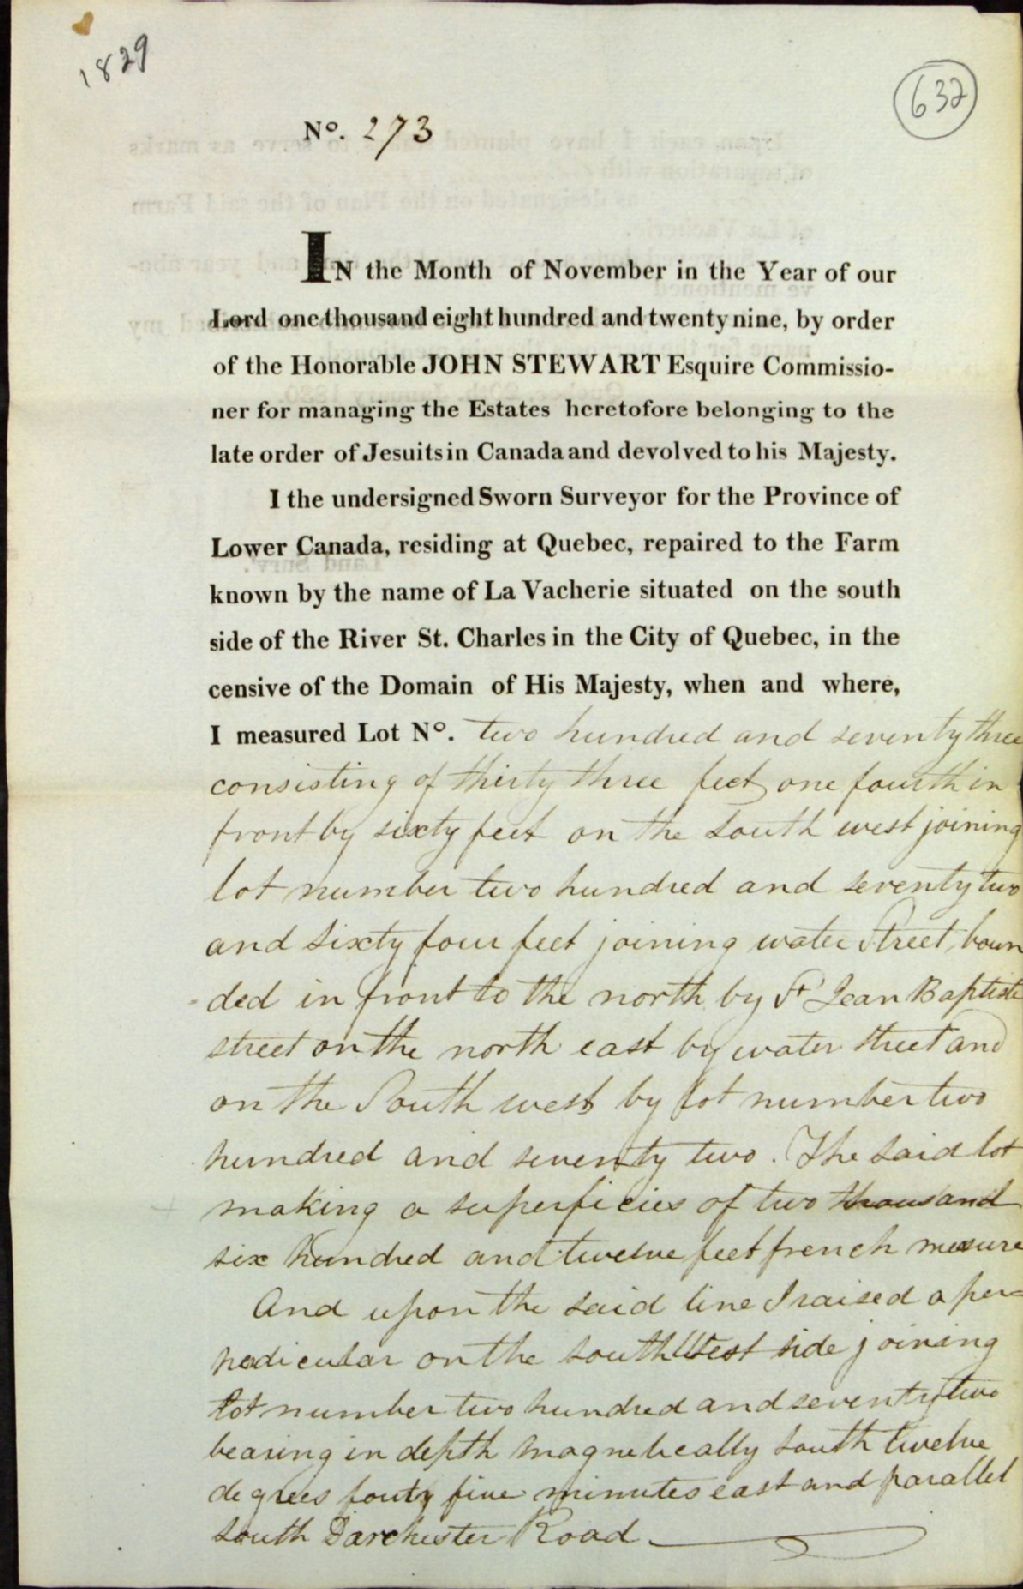 1829
632
No. 273
IN the Month of November in the Year of our
Lord one thousand eight hundred and twenty nine, by order
of the Honorable JOHN STEWART Esquire Commissio-
ner for managing the Estates heretofore belonging to the
late order of Jesuits in Canada and devolved to his Majesty.
I the undersigned Sworn Surveyor for the Province of
Lower Canada, residing at Quebec, repaired to the Farm
known by the name of La Vacherie situated on the south
side of the River St. Charles in the City of Quebec, in the
censive of the Domain of His Majesty, when and where,
I measured Lot No. two hundred and seventy three
consisting of thirty three feet one fourth in
front by sixty feet on the South west joining
lot number two hundred and seventy two
and sixty four feet joining water Street, boun
-ded in front to the north by St Jean Baptiste
street on the north east by water street and
on the South west by lot number two
hundred and seventy two. The said lot
making a superficies of two thousand
six hundred and twelve feet french mesure
And upon the said line I raised a per=
pedicular on the south West side joining
lot number two hundred and seventy two
bearing in depth magnetically south twelve
degrees forty five minutes east and parallel
south Darchester Road